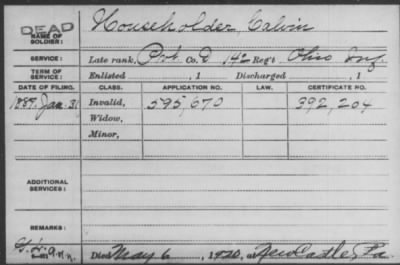 DEAD
NAME OF SOLDIER: Householder, Calvin
SERVICE: Late rank, Pvt Co. D 142 Reg't Ohio Inf.
TERM OF SERVICE: Enlisted , 1 Discharged , 1
DATE OF FILING. CLASS. APPLICATION NO. LAW. CERTIFICATE NO.
1887. Jan. 31 Invalid, 595,670 392,204
Widow,
Minor,
ADDITIONAL SERVICES:
REMARKS:
Died May 6, 1920, at New Castle, Pa.